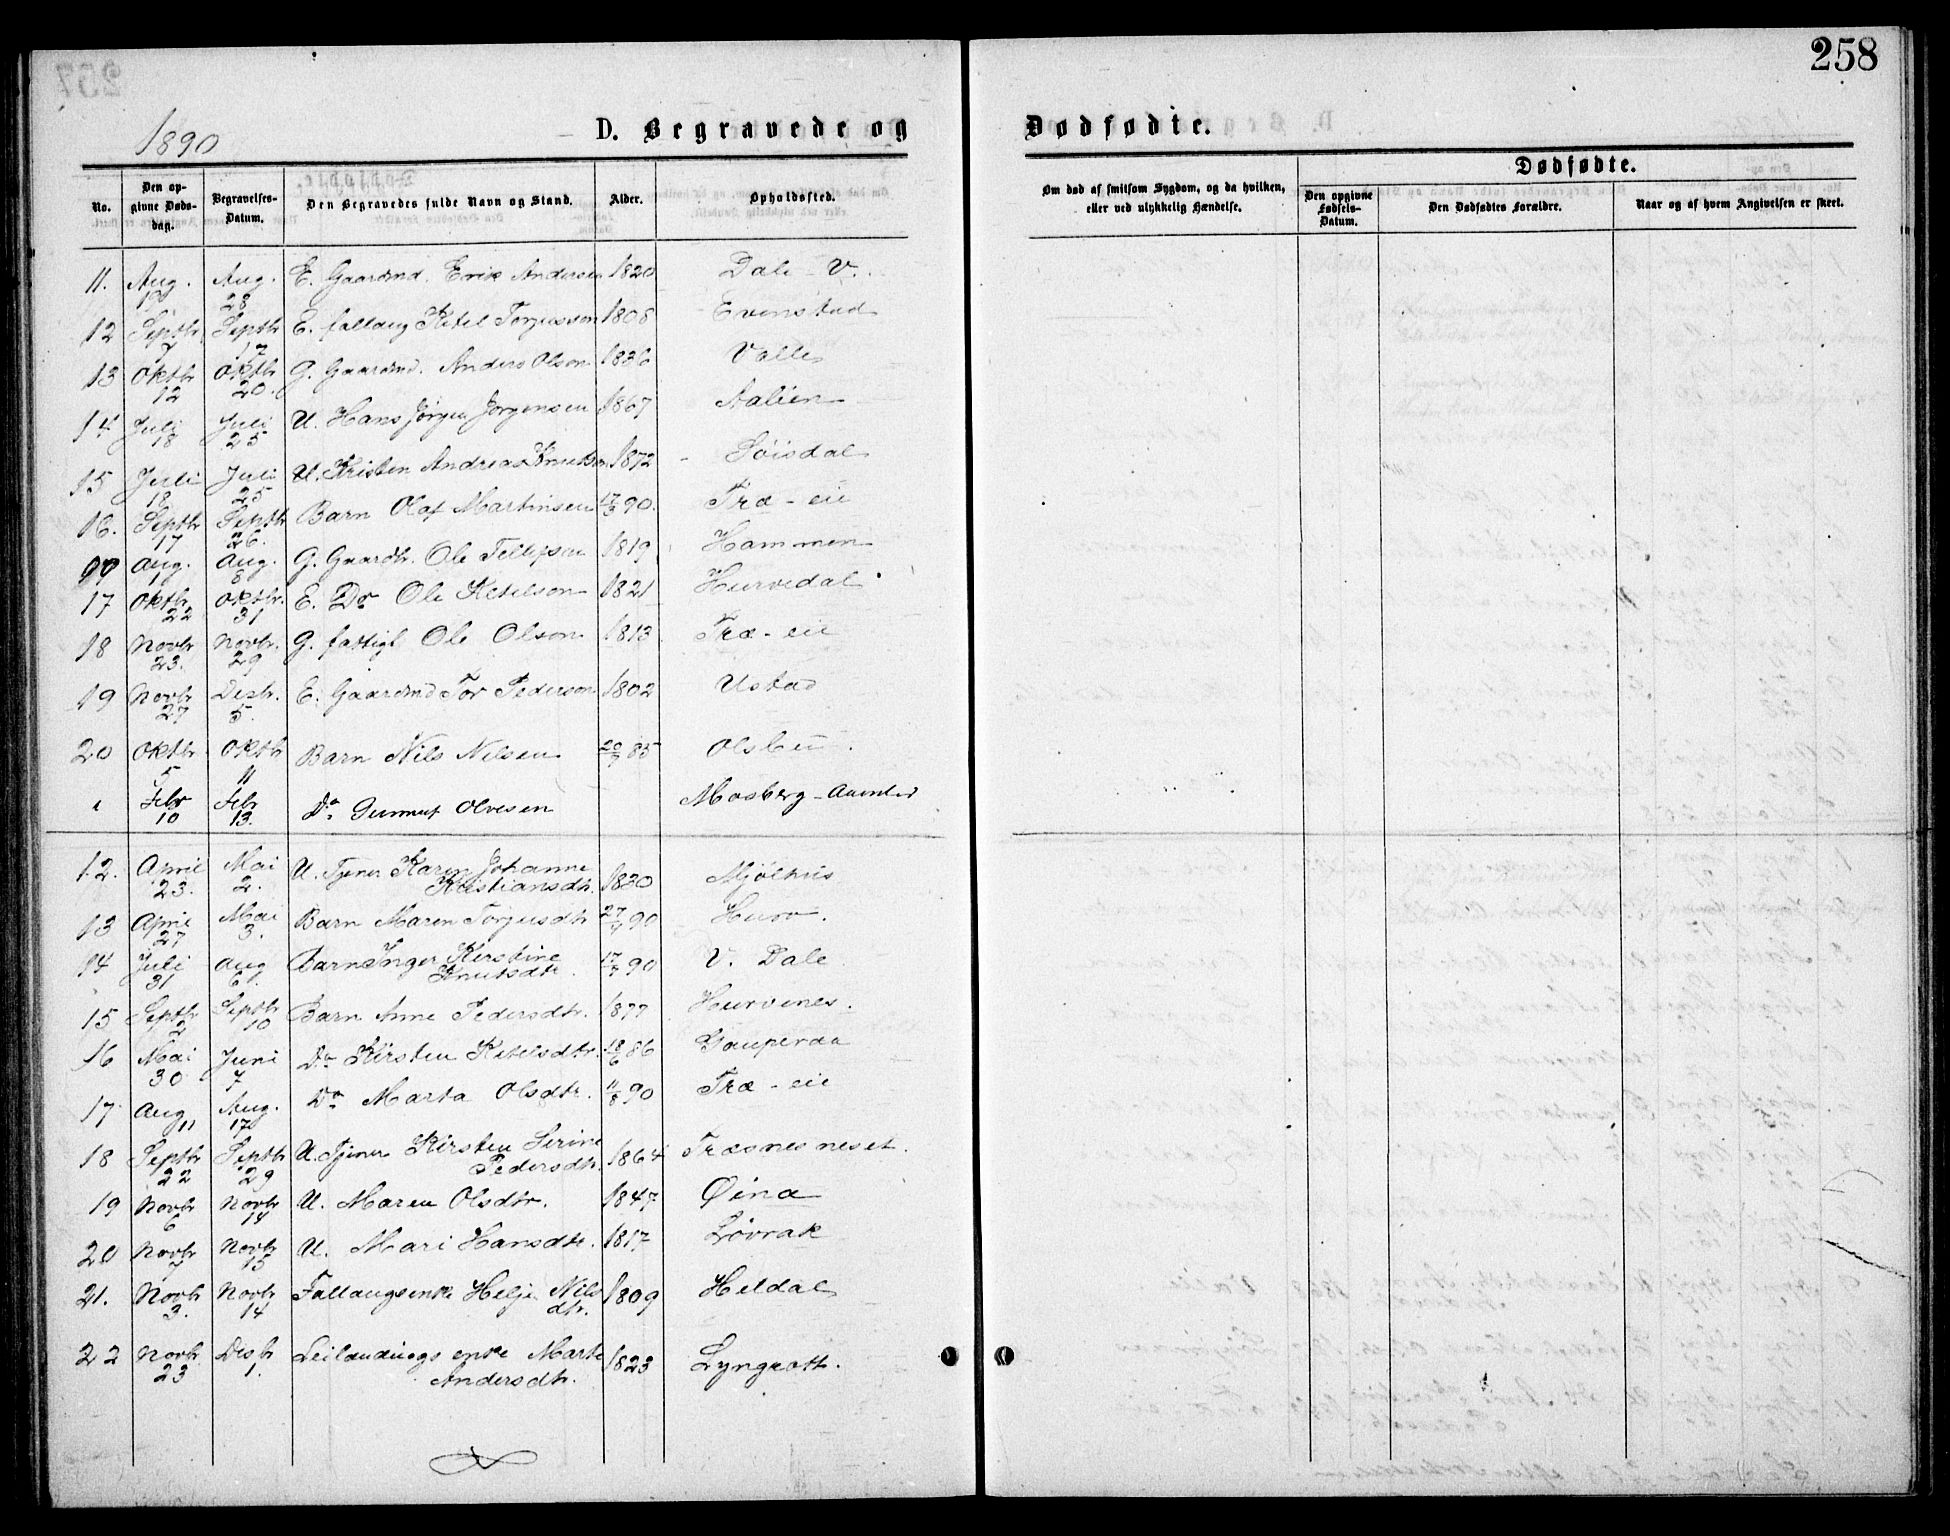 258
1890
D. Begravede og Dødfødte.
No. Den opgivne Dødsdag. Begravelses-Datum. Den Begravedes fulde Navn og Stand. Alder. Opholdssted.
Om død af smitsom Sygdom, og da hvilken, eller ved ulykkelig Hændelse.
Dødfødte.
Den opgivne Fødsels-Datum. Den Dødfødtes Forældre. Naar og af hvem Angivelsen er skeet.
11. Aug. Aug. 28 E. Gaardmd. Erik Andersen 1820 Dale - V.
12 Septbr 7 Septbr 17 E. fallaug Ketel Torjusson 1808 Evenstad
13 Oktbr 12 Oktbr 20. G. Gaardmd. Anders Olson 1836 Valle
14 Juli 18 Juli 25 U. Hans Jörgen Jörgensen 1867 Aalien
15 Juli 18 Juli 25 U. Kristen Andreas Knutsen 1872 Söisdal
16. Septbr 17 Septbr 26. Barn Olaf Martinsen 90. Træ - eie
Aug. 1 Aug. 8 G. Gaardbr. Ole Tellefsen 1819 Hammen
17 Oktbr 22 Oktbr. 31 E. Do Ole Ketelson 1821 Hurvedal
18 Novbr 23. Novbr. 29 G. fattigl Ole Olson 1813 Træ - eie
19 Novbr 27 Desbr. 5. E. Gaardmd Tor Pederson 1802 Ustad
20 Oktbr 5 Oktbr 11 Barn Nils Nilsen 20/7 85 Olsbu
Febr 10 Febr 13. Do Gunnuf Olvesen Mosberg - Aamlid
12. April 23. Mai 2. U. Tjener Karen Johanne
Kristiansdtr. 1830 Mjölhus
13 April 27 Mai 3. Barn Maren Torjusdtr 27/4 90 Hurv.
14 Juli 31 Aug 6. Barn Inger Kirstine
Knutsdtr. 17/7 90 V. Dale
15 Septbr 2 Septbr 10 Barn Anne Pedersdtr. 1877 Hurvenes.
16 Mai 30 Juni 7 Do Kirsten Ketelsdtr. 18/6 86 Gauperaa
17 Aug 11 Aug. 17 Do Marta Olsdtr. 11/8 90 Træ - eie
18 Septbr 22 Septbr 29 U. Tjener Kirsten Serine
Pedersdtr. 1864 Træsnesneset.
19 Novbr 6 Novbr 14 U. Maren Olsdtr. 1847 Øina
20 Novbr 7 Novbr 15 U. Mari Hansdtr. 1817 Lövrak
21. Novbr 3. Novbr 14 Fallaugsenke Helje Nils
dtr. 1809 Heldal
22 Novbr 23 Desbr 1. Leilændings enke Marte
Andersdtr. 1823 Lyngrott.